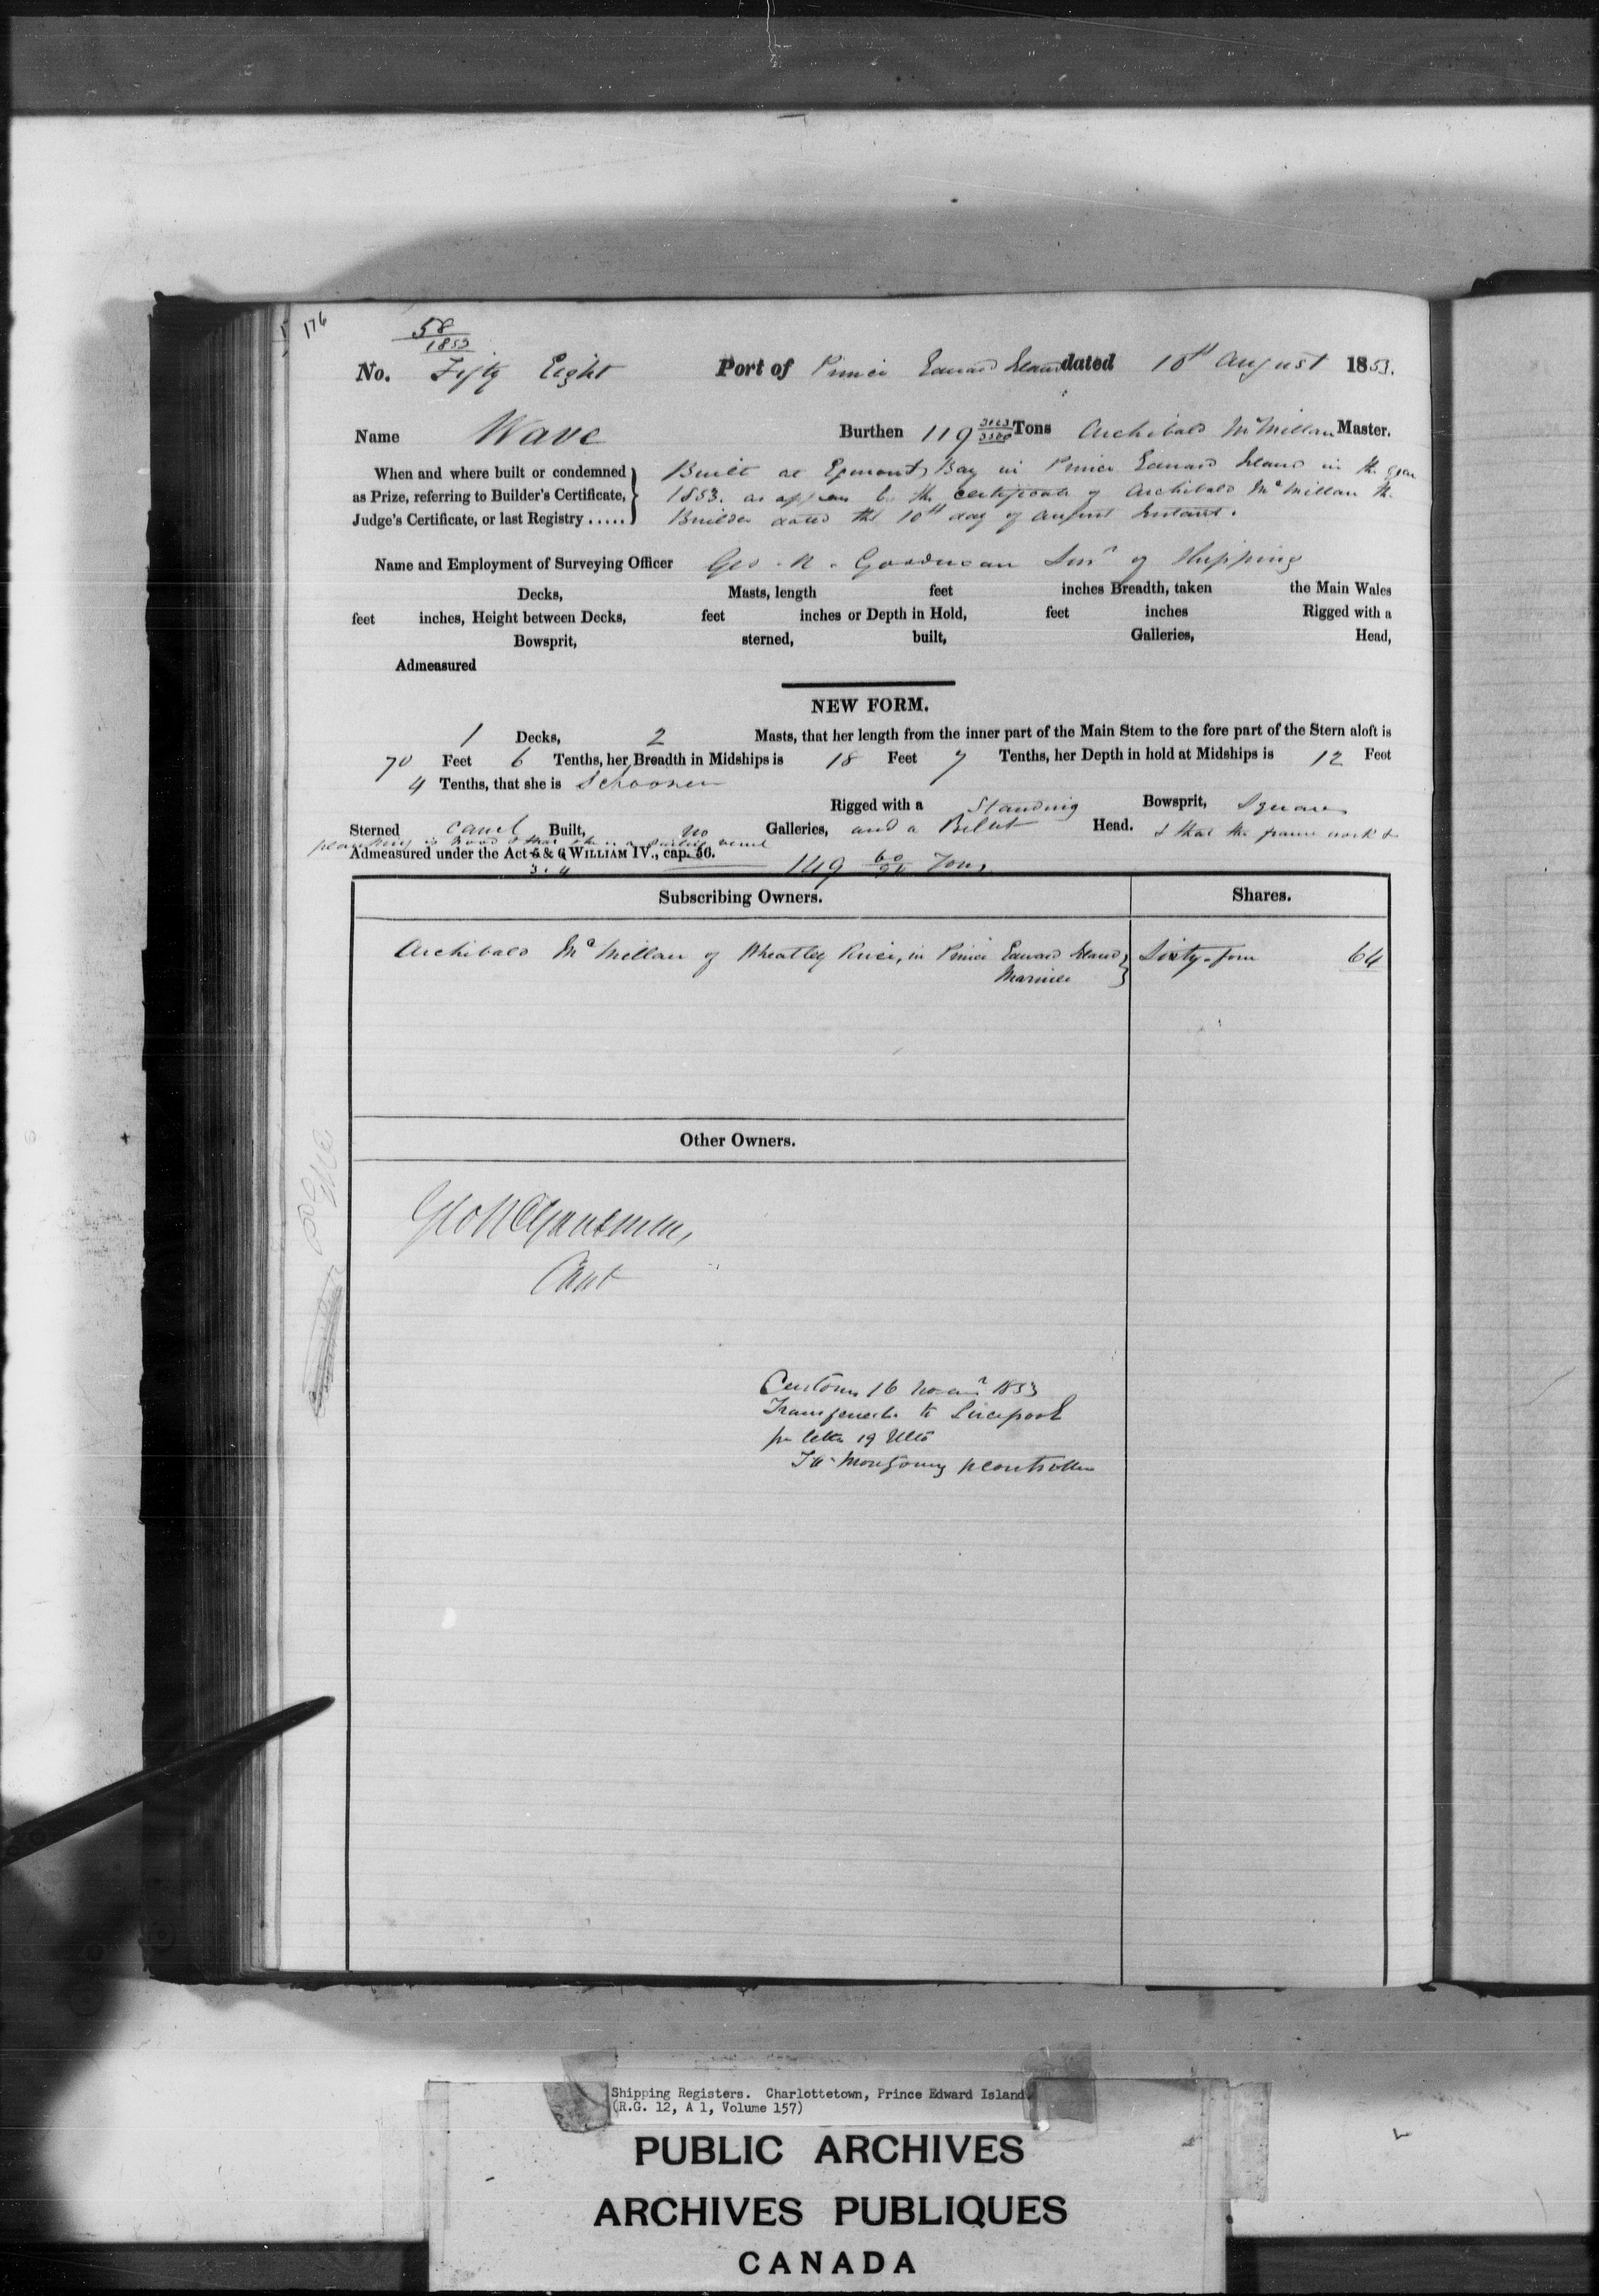 176
58
1853
No. Fifty Eight Port of Prince Edward Island dated 10th August 1853.
Name Wave Burthen 119 Tons Archibald McMillan Master.
When and where built or condemned Built at Egmont Bay in Prince Edward Island in the year
as Prize, referring to Builder's Certificate, 1853. as appears by the certificate of Archibald McMillan the
Judge's Certificate, or last Registry ..... Builder dated the 10th day of August Instant.
Name and Employment of Surveying Officer Geo. R. Goodman Surr of Shipping
Decks, Masts, length feet inches Breadth, taken the Main Wales
feet inches, Height between Decks, feet inches or Depth in Hold, feet inches Rigged with a
Bowsprit, sterned, built, Galleries, Head,
Admeasured
NEW FORM.
1 Decks, 2 Masts, that her length from the inner part of the Main Stem to the fore part of the Stern aloft is
70 Feet 6 Tenths, her Breadth in Midships is 18 Feet 7 Tenths, her Depth in hold at Midships is 12 Feet
4 Tenths, that she is Schooner
Rigged with a Standing Bowsprit, Square
Sterned Carvel Built, no Galleries, and a Billet Head. & that the frame work &
planking is wood & that she is a sailing vessel
Admeasured under the Act 5 & 6 WILLIAM IV., cap. 56.
3. 4 149 Tons
Subscribing Owners. Shares.
Archibald McMillan of Wheatley River, in Prince Edward Island Sixty-four 64
Mariner
Other Owners.
Geo R Goodman
Cont
Customs 16 1853
Transferred to Liverpool
per letter 19 Ulto
Montgomery
Shipping Registers. Charlottetown, Prince Edward Island
(R.G. 12, A 1, Volume 157)
PUBLIC ARCHIVES
ARCHIVES PUBLIQUES
CANADA